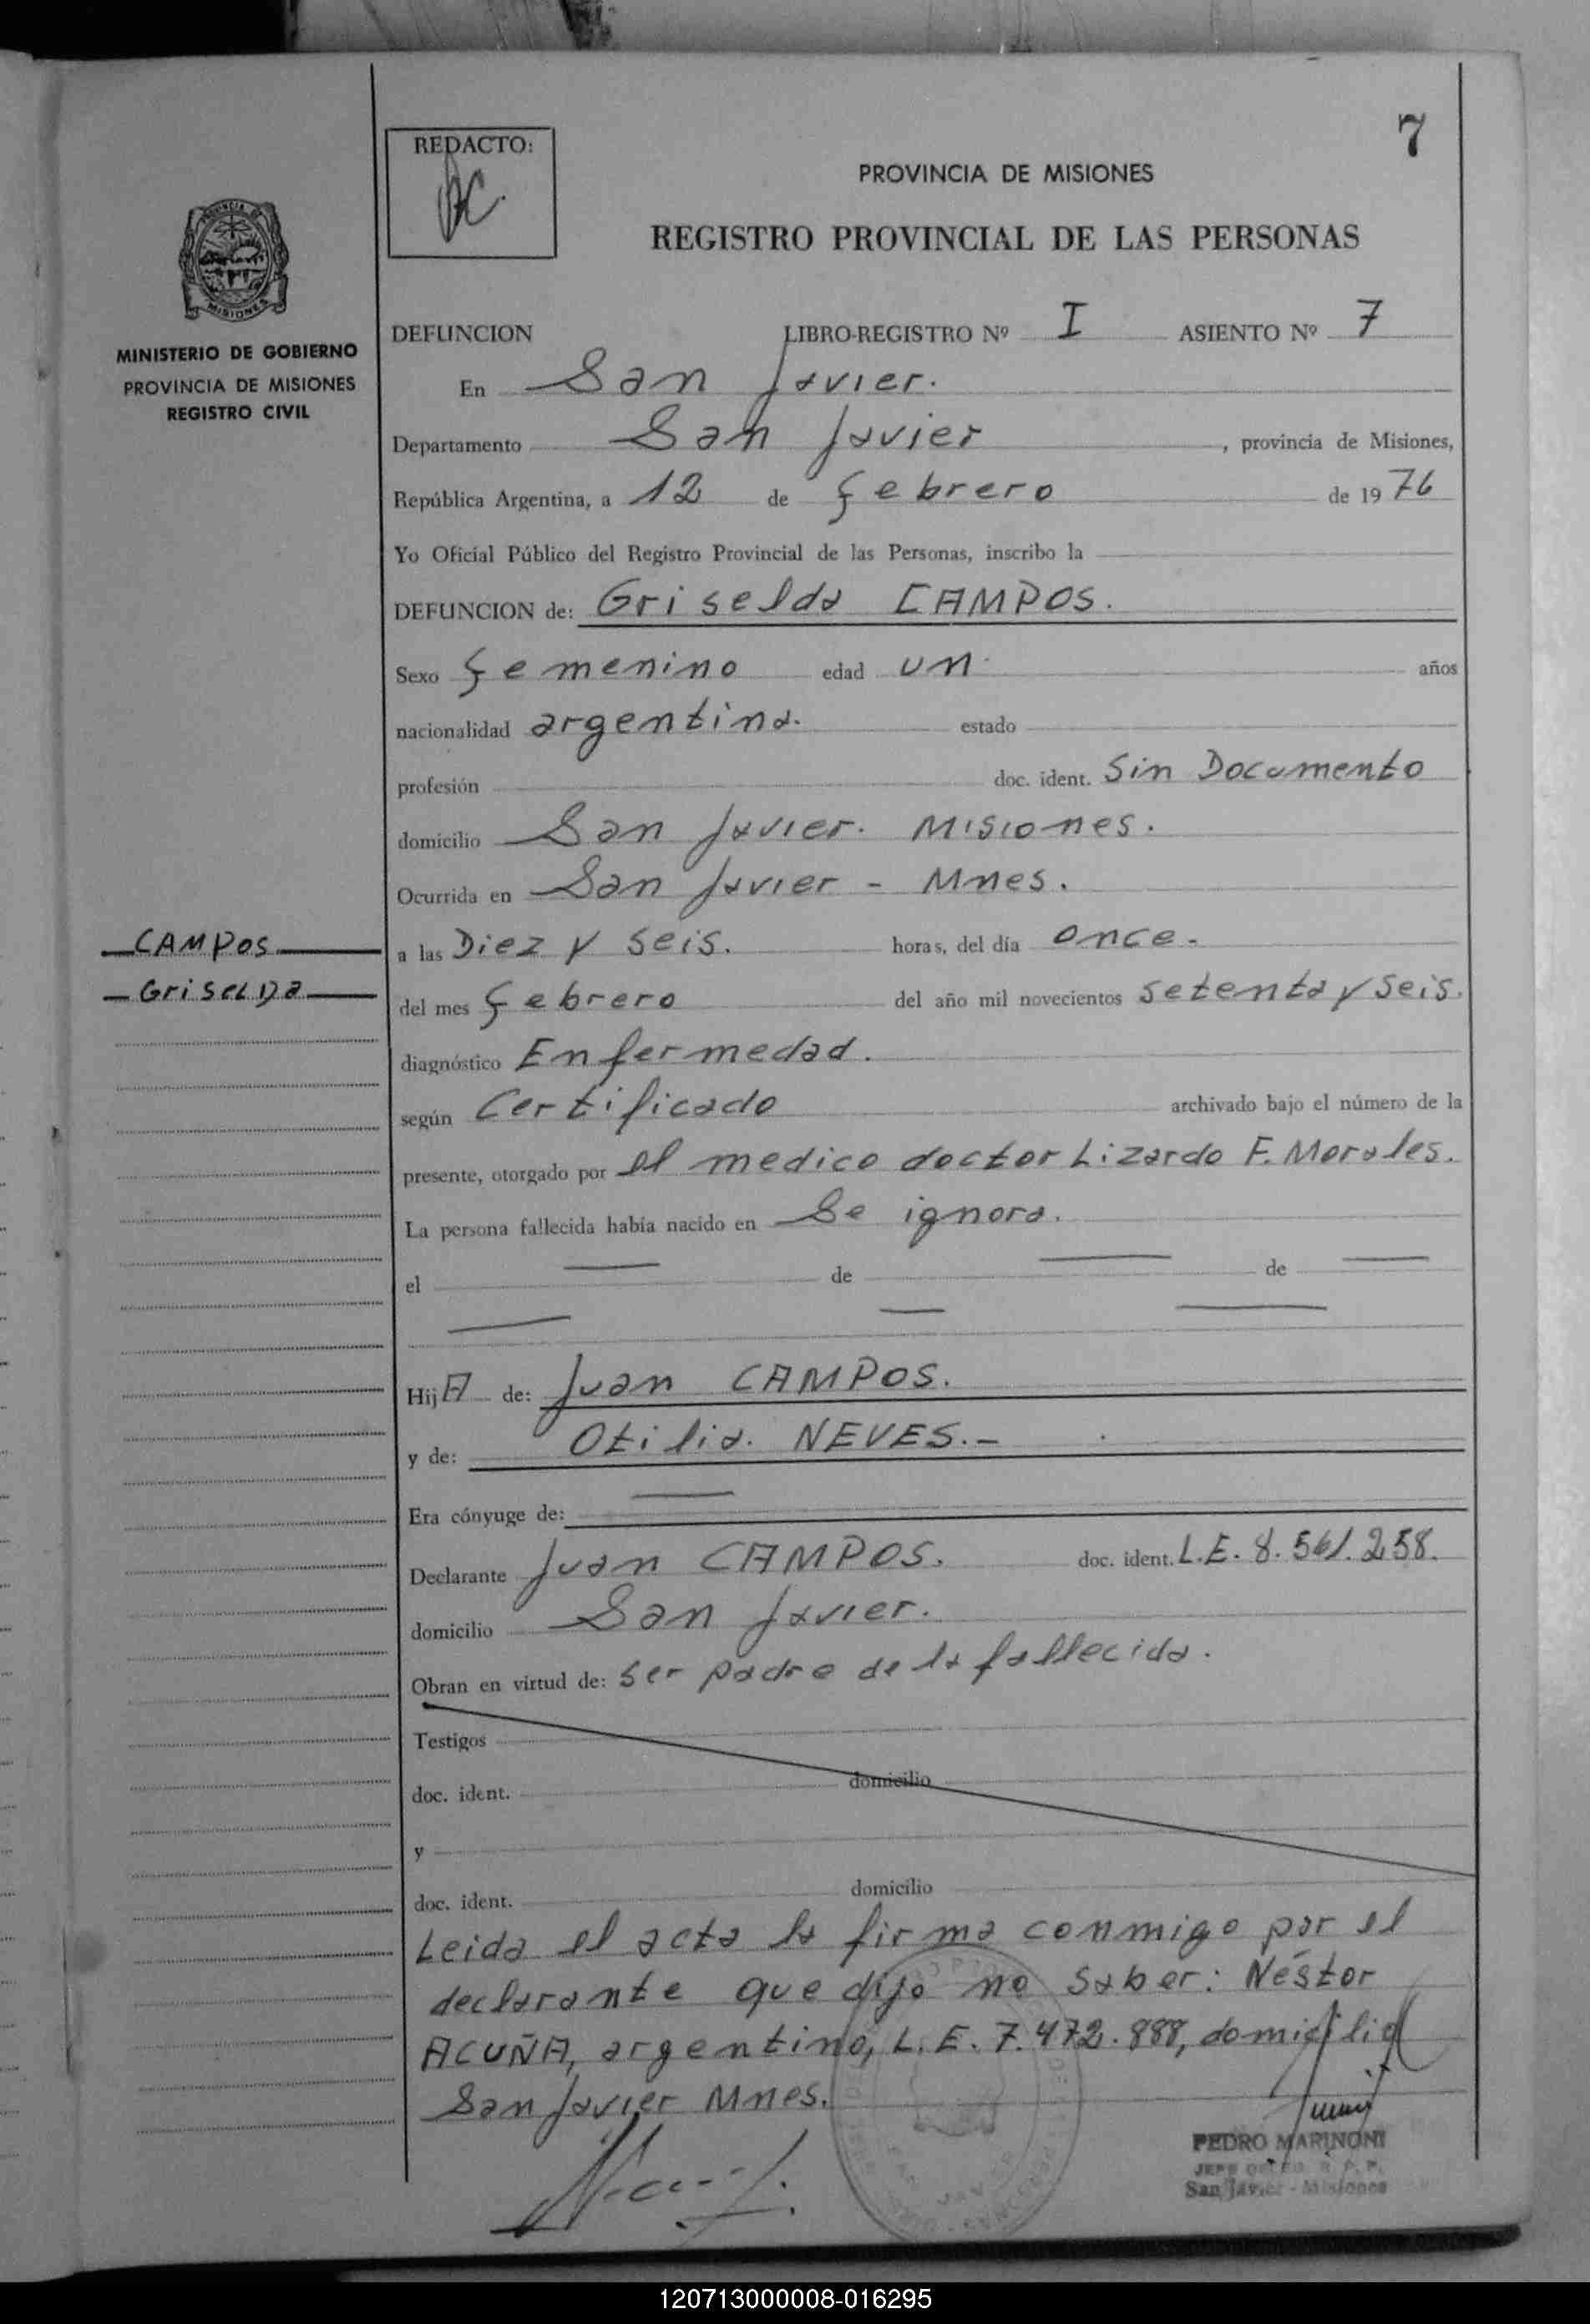 7
REDACTO:
PROVINCIA DE MISIONES
REGISTRO PROVINCIAL DE LAS PERSONAS
MISIONES
MINISTERIO DE GOBIERNO
PROVINCIA DE MISIONES
REGISTRO CIVIL
DEFUNCION LIBRO-REGISTRO Nº I ASIENTO Nº 7
En San Javier.
Departamento San Javier, provincia de Misiones,
República Argentina, a 12 de Febrero de 1976
Yo Oficial Público del Registro Provincial de las Personas, inscribo la
DEFUNCION de: Griselda CAMPOS.
Sexo Femenino edad un años
nacionalidad argentina. estado
profesión doc. ident. Sin Documento
domicilio San Javier. Misiones.
Ocurrida en San Javier - Mnes.
CAMPOS
Griselda
a las Diez y seis. horas, del día once.
del mes Febrero del año mil novecientos setenta y seis.
diagnóstico Enfermedad.
según Certificado archivado bajo el número de la
presente, otorgado por el medico doctor Lizardo F. Morales.
La persona fallecida había nacido en Se ignora.
el de de
HijA de: Juan CAMPOS.
y de: Otilia. NEVES.-
Era cónyuge de:
Declarante Juan CAMPOS. doc. ident. L.E. 8.561.258.
domicilio San Javier.
Obran en virtud de: ser padre de la fallecida.
Testigos
doc. ident. domicilio
y
doc. ident. domicilio
Leida el acta la firma conmigo por el
declarante que dijo no saber: Néstor
ACUÑA, argentino, L.E. 7.472.888, domicilio
San Javier Mnes.
PEDRO MARINONI
San Javier - Misiones
120713000008-016295